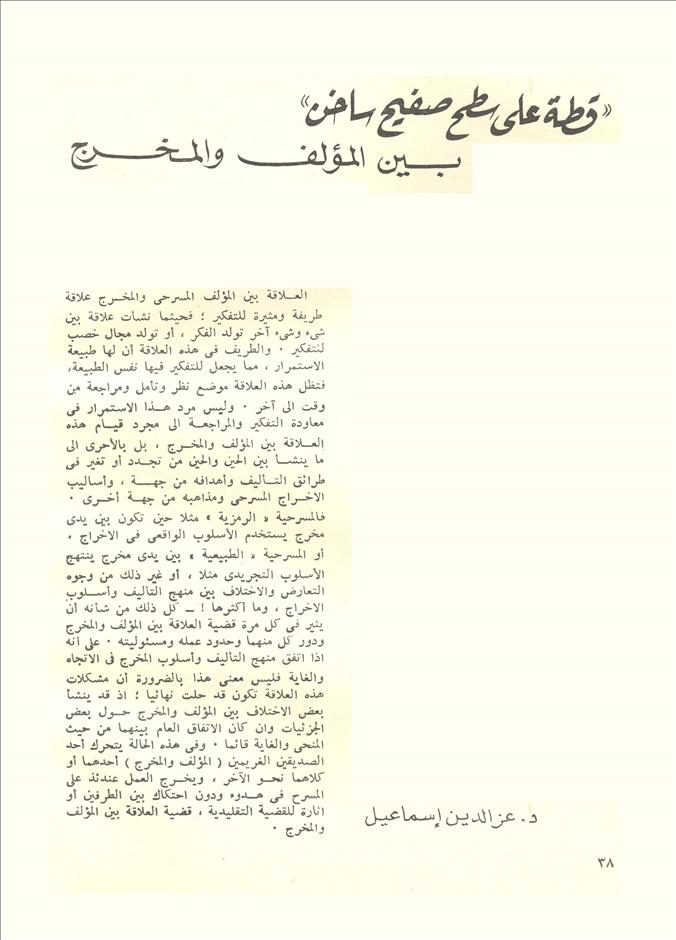 «قطة على سطح صفيح ساخن»
بين المؤلف والمخرج
العلاقة بين المؤلف المسرحى والمخرج علاقة
طريفة ومثيرة للتفكير ؛ فحيثما نشأت علاقة بين
شىء وشىء آخر تولد الفكر ، أو تولد مجال خصب
لتفكير . والطريف فى هذه العلاقة أن لها طبيعة
الاستمرار ، مما يجعل للتفكير فيها نفس الطبيعة،
فتظل هذه العلاقة موضع نظر وتأمل ومراجعة من
وقت الى آخر . وليس مرد هذا الاستمرار فى
معاودة التفكير والمراجعة الى مجرد قيام هذه
العلاقة بين المؤلف والمخرج ، بل بالأحرى الى
ما ينشأ بين الحين والحين من تجدد أو تغير فى
طرائق التأليف وأهدافه من جهة ، وأساليب
الاخراج المسرحى ومذاهبه من جهة أخرى .
فالمسرحية « الرمزية » مثلا حين تكون بين يدى
مخرج يستخدم الأسلوب الواقعى فى الاخراج ،
أو المسرحية « الطبيعية » بين يدى مخرج ينتهج
الأسلوب التجريدى مثلا ، أو غير ذلك من وجوه
التعارض والاختلاف بين منهج التأليف وأسلوب
الاخراج ، وما أكثرها ! ــ كل ذلك من شأنه أن
يثير فى كل مرة قضية العلاقة بين المؤلف والمخرج
ودور كل منهما وحدود عمله ومسئوليته . على أنه
اذا اتفق منهج التأليف وأسلوب المخرج فى الاتجاه
والغاية فليس معنى هذا بالضرورة أن مشكلات
هذه العلاقة تكون قد حلت نهائيا ؛ اذ قد ينشأ
بعض الاختلاف بين المؤلف والمخرج حول بعض
الجزئيات وان كان الاتفاق العام بينهما من حيث
المنحى والغاية قائما . وفى هذه الحالة يتحرك أحد
الصديقين الغريمين ( المؤلف والمخرج ) أحدهما أو
كلاهما نحو الآخر ، ويخرج العمل عندئذ على
المسرح فى هدوء ودون احتكاك بين الطرفين أو
اثارة للقضية التقليدية ، قضية العلاقة بين المؤلف
والمخرج .
د. عز الدين إسماعيل
٣٨